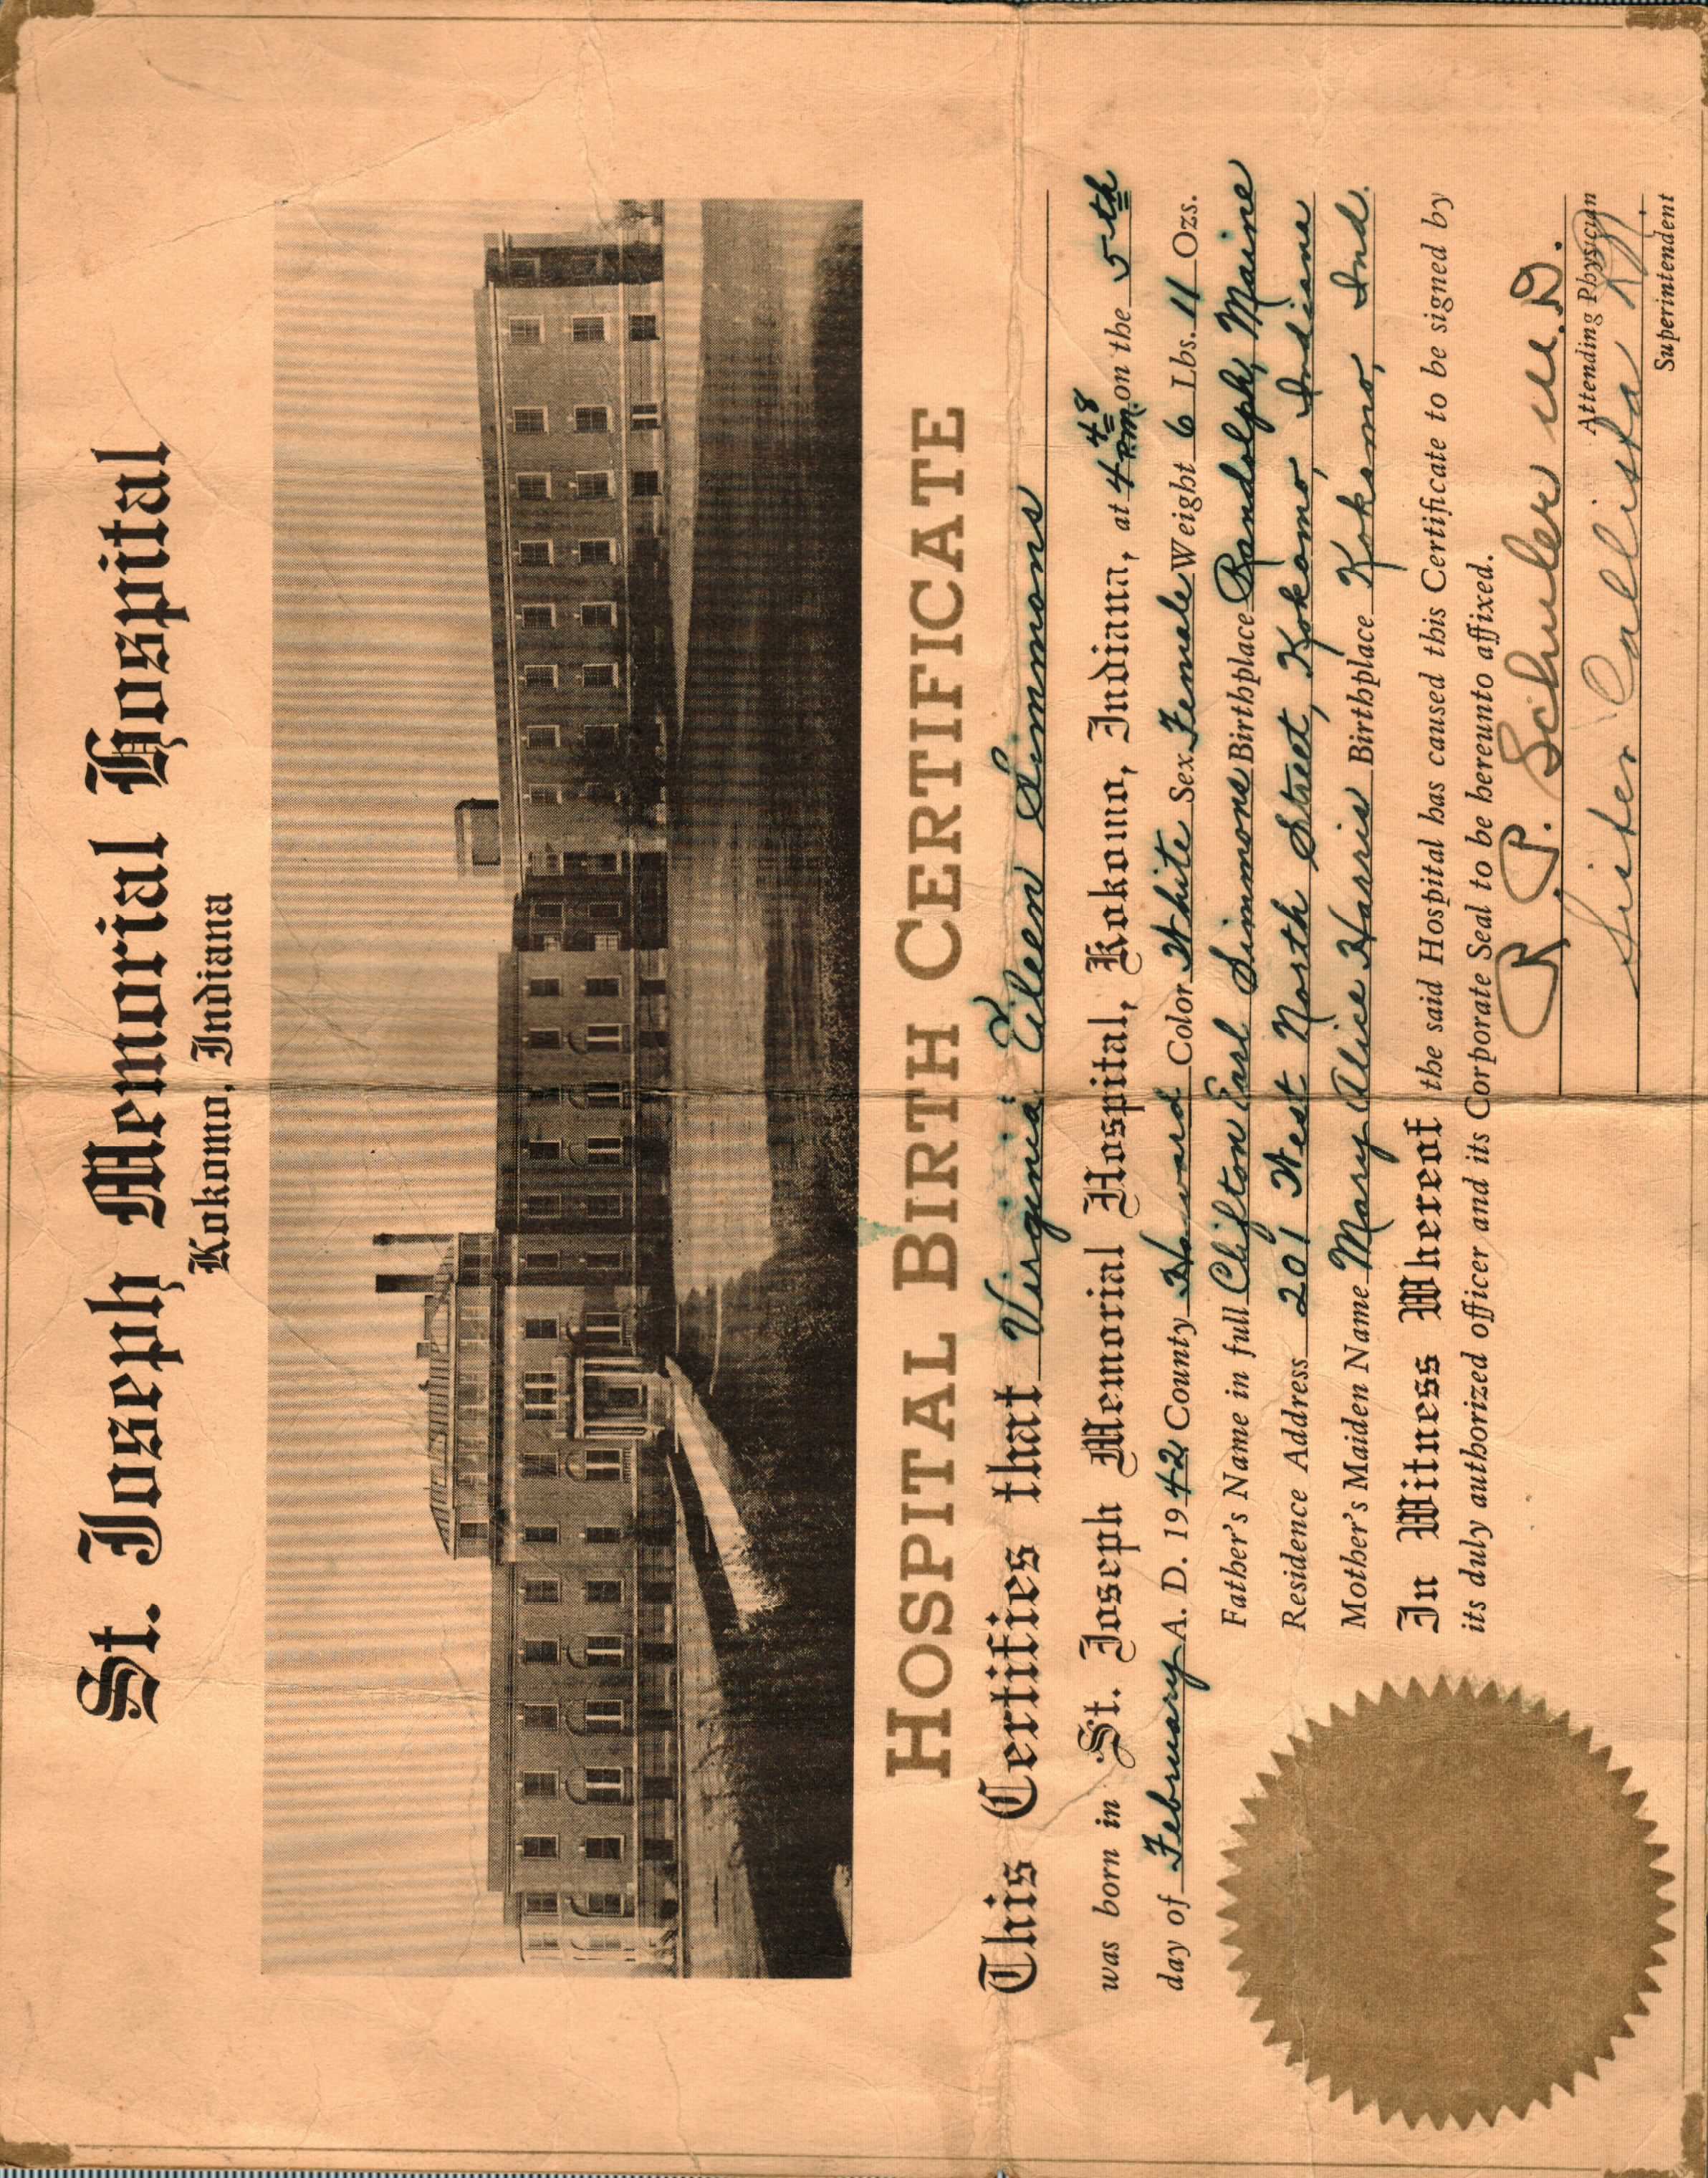 St. Joseph Memorial Hospital
Kokomo, Indiana
HOSPITAL BIRTH CERTIFICATE
This Certifies that Virginia Eileen Simmons
was born in St. Joseph Memorial Hospital, Kokomo, Indiana, at 4 48 P.M. on the 5th
day of February A. D. 1942 County Howard Color White Sex Female Weight 6 Lbs. 11 Ozs.
Father's Name in full Clifton Earl Simmons Birthplace Randolph, Maine
Residence Address 201 West North Street, Kokomo, Indiana
Mother's Maiden Name Mary Alice Harris Birthplace Kokomo, Ind.
In Witness Whereof the said Hospital has caused this Certificate to be signed by
its duly authorized officer and its Corporate Seal to be hereunto affixed.
R. P. Schuler M.D.
Attending Physician
Sister Callista
Superintendent